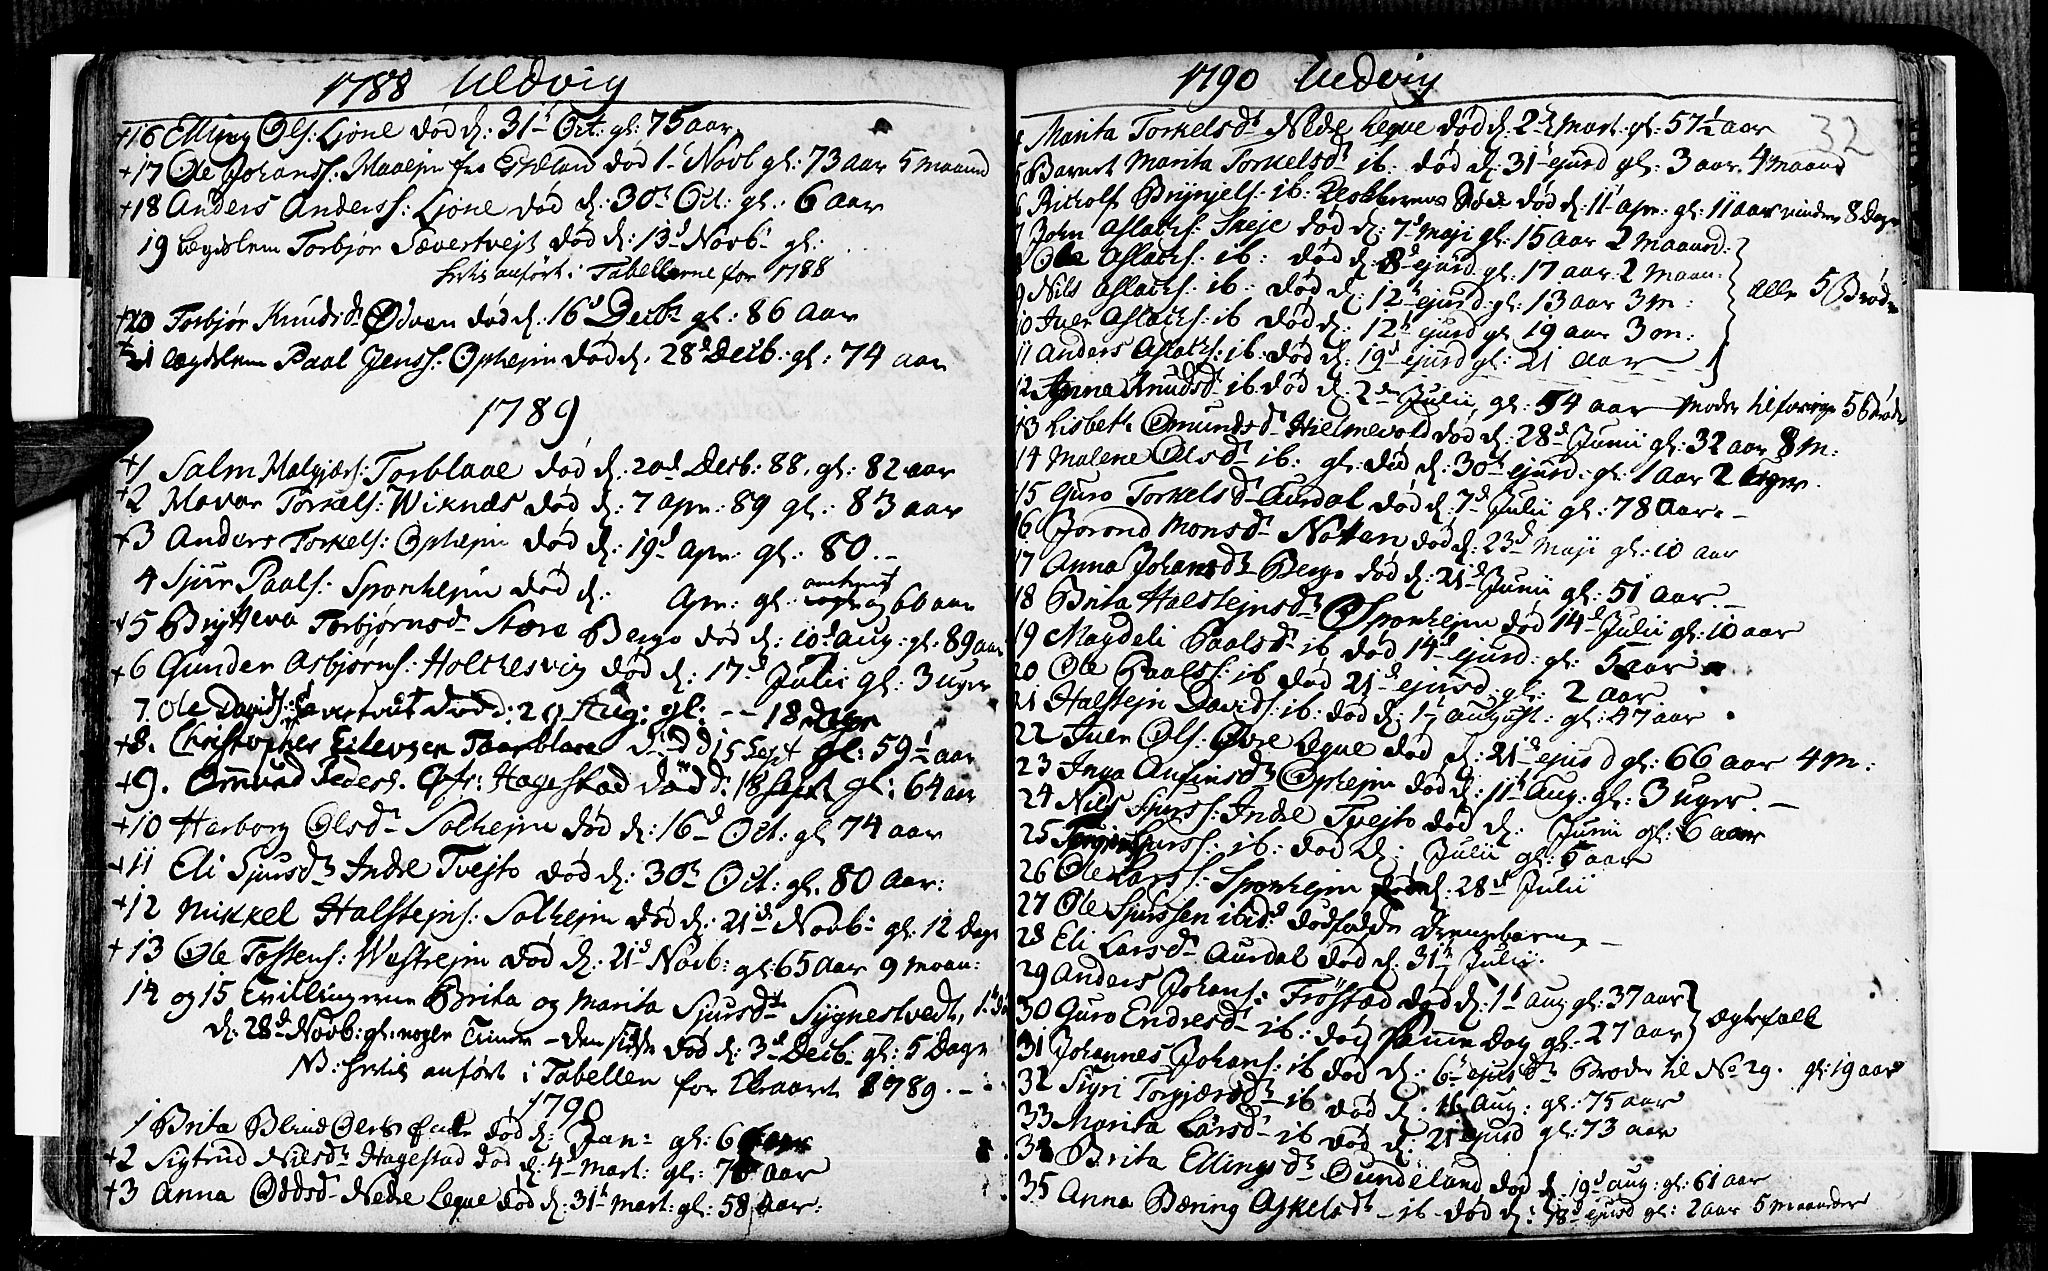 1788 Uldvig
+16 Elling Ols: Lione død d: 31t Oct: gl: 75 aar
+17 Ole Johans: fra død 1t Novb gl: 73 aar 5 maaned
+18 Anders Anders: Lione død d: 30t Oct: gl: 6 aar
19 Lægdslem Torbjør død d: 13d Novb: gl:
hertil anført i Tabellerne for 1788
+20 Torbjør Knudsd: Ødven død d: 16d Decb: gl: 86 aar
+21 Lægdslem Paal Jens: Ophejm død d. 28d Decb: gl: 74 aar
1789
+1 Salm Torblaae død d: 20d Decb: 88. gl: 82 aar
+2 Torkels: Wiknæs død d: 7 apr: 89 gl: 83 aar
+3 Anders Torkels: Ophejm død d: 19d apr: gl: 80.-
4 Sjur Paals: Sponhejm død d: Apr: gl: 60 aar
+5 Brytteva Torbjørnsd: Store Berge død d: 10d Aug: gl: 89 aar
+6 Gunder Asbjørns: Holtkesvig død d: 17d Julii gl: 3 uger
7. Ole Davids: død d: 29 Aug: gl: -- 18 dage
+8. Christopher Eilevsen Taarblaae død d 15 Sept gl: 59½ aar
+9. Ommund Peders. Hagestad død d: 18 Sept gl: 64 aar
+10 Harborg Olsd: Solhejm død d: 16d Oct: gl 74 aar
+11 Eli Sjursd: Indre Tvejto død d: 30t Oct: gl. 80 aar:
+12 Mikkel Halstejns: Solhejm død d: 21d Novb: gl: 12 dage
+13 Ole Tostens: Westrejm død d: 21d Novb: gl: 65 aar 9 maan:
14 og 15 Tvillingerne Brita og Marita Sjursd: Sygnestvedt,
d: 28d Novb: gl: nogle Timer - den sidste død d: 3d Decb: gl: 5 Dage
NB: hertil anført i Tabellen for Aaret 1789. -
1790
1 Brita Blind død d: Jan: gl: 6
+2 Sigtrud Nilsd: Hagestad død d: 4d Mart: gl: 76 aar
+3 Anna Oddsd: Nedre Leqve død d: 31t Mart: gl: 58 aar:
1790 Uldvig
32
4 Marita Torkelsd: Nedre Leqve død d: 2d Mart: gl: 57½ aar
5 Barnet Marita Torkelsd: ib: død d: 31t ejusd gl: 3 aar. 4 maaned
6 Brynjels: ib: Klokkerens død d: 11t Apr: gl: 11 aar minder 8 Dage
7 John Aslachs: Skeje død d: 7d Maji gl: 15 aar 2 maaned:
8 Ole Aslachs: ib: død d: 8d ejusd gl: 17 aar 2 maan:
9 Nils Aslachs: ib: død d: 12t ejusd gl: 13 aar 3 m: alle 5 Brødre
10 Iver Aslachs: ib død d: 12t ejusd gl 19 aar 3 m:
11 Anders Aslachs: ib: død d: 19d ejusd gl: 21 aar
12 Anna Knudsd: ib død d: 2den Julii, gl: 54 aar Moder til forrige 5 Brødre
13 Lisbeth Omundsd: Hielmevold død d: 28d Junii gl: 32 aar 8 m:
14 Malene Olsd: ib: gl: død d: 30t ejusd: gl: 1 aar 2 uger
15 Guro Torkelsd: Aurdal død d: 7d Julii gl: 78 aar.-
16 Jorond Monsd: Notten død d: 23d Maji gl: 10 aar
17 Anna Johansd: Berge død d: 21d Junii gl: 51 aar.
18 Brita Halstejnsd: Sponhejm død 14d Julii gl: 10 aar
19 Magdeli Paalsd: ib død 14d ejusd: gl: 5 aar
20 Ole Paals: ib død 21d ejusd: gl: 2 aar
21 Halstejn Davids: ib: død d: 1t August: gl: 47 aar
22 Iver Ols: Øvre Leqve død d: 21d ejusd gl: 66 aar 4 m:
23 Inga Anfinsd: Ophejm død d: 11t Aug: gl: 3 uger.-
24 Nils Sjurs: Indre Tvejto død d: Junii gl: 6 aar
25 Sjurs: ib: død d: Julii gl: 5 aar
26 Ole Lars: Sponhejm død d: 28d Julii
27 Ole Sjursen ibid: dødfødde drengebarn -
28 Eli Larsd: Aurdal død d: 31t Julii.
29 Anders Johans: Frøstad død d: 1t Aug gl: 37 aar
30 Guro Endresd: ib: død samme Dag gl: 27 aar ægtefolk
31 Johannes Johans: ib død d: 6t ejusd: Broder til No 29. gl: 19 aar
32 Sigri Torgjærsd: ib død d: 16 Aug: gl: 75 aar
33 Marita Larsd: ib død d: 21 ejusd gl: 73 aar
34 Brita Ellingsd: Oundeland død d. 19d Aug: gl: 61 aar
35 Anna Bæring Askelsd: - ib - død d: 18d ejusd gl: 2 aar 5 maaneder